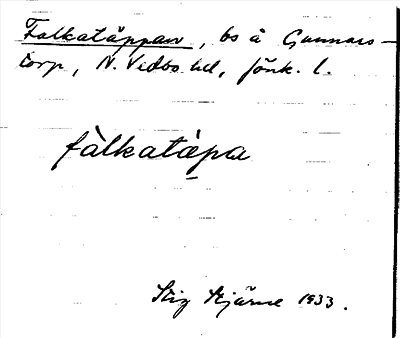 Folkatäppan, bs å Gunnars-
torp, N. Vedbo hd, Jönk. l.
fàlkatäpa
Stig Stjärne 1933.